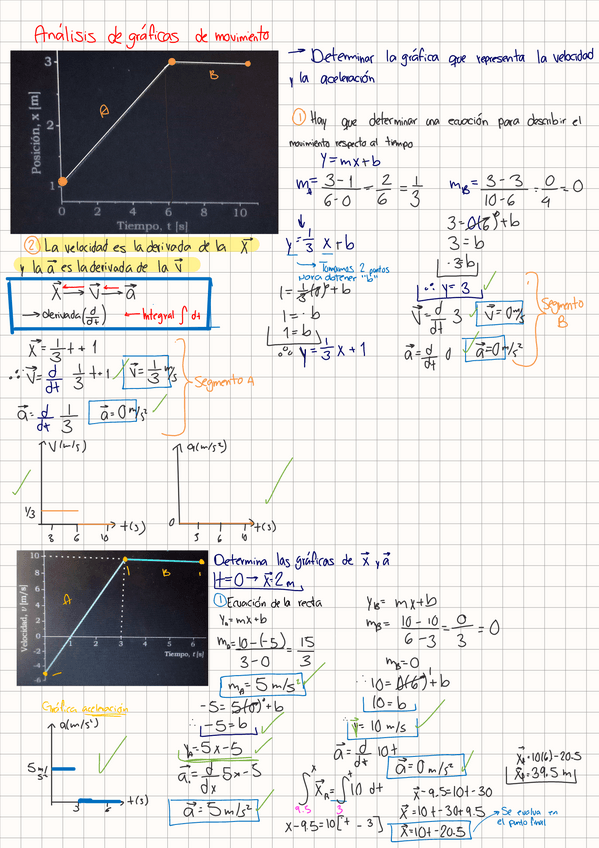 Análisis de gráficas de movimiento
Posición, x [m]
3
2
1
0 2 4 6 8 10
Tiempo, t [s]
A
B
→ Determinar la gráfica que representa la velocidad
y la aceleración
① Hay que determinar una ecuación para describir el
movimiento respecto al tiempo
Y=mx+b
m_A = 3-1/6-0 = 2/6 = 1/3
m_B = 3-3/10-6 = 0/4 = 0
y = 1/3 x+b
→ Tomamos 2 puntos
para obtener "b"
1 = 1/3(0)+b
1 = b
1 = b
∴ y = 1/3 x + 1
3 = 0(6)+b
3 = b
∴ 3=b
∴ y = 3
v⃗ = d/dt 3
v⃗ = 0 m/s
a⃗ = d/dt 0
a⃗ = 0 m/s²
Segmento
B
② La velocidad es la derivada de la x⃗
y la a⃗ es la derivada de la v⃗
x⃗ → v⃗ → a⃗
→ derivada (d/dt) ← Integral ∫ dt
x⃗ = 1/3 t + 1
∴ v⃗ = d/dt 1/3 t+1
v⃗ = 1/3 m/s
a⃗ = d/dt 1/3
a⃗ = 0 m/s²
Segmento A
V(m/s)
1/3
3 6 10
t(s)
a(m/s²)
0
3 6 10
t(s)
Velocidad, v [m/s]
10
8
6
4
2
0
-2
-4
-6
1 2 3 4 5 6
Tiempo, t [s]
A
B
Determina las gráficas de x⃗ y a⃗
t=0 → x⃗=2m
① Ecuación de la recta
Y_A = mx+b
m_A = 10-(-5)/3-0 = 15/3
m_A = 5 m/s²
-5 = 5(0)+b
∴ -5 = b
Y_A = 5x-5
a⃗ = d/dx 5x-5
a⃗ = 5 m/s²
Y_B = mx+b
m_B = 10-10/6-3 = 0/3 = 0
m_B = 0
∴ 10 = 0(6)+b
10 = b
∴ v⃗ = 10 m/s
a⃗ = d/dt 10
a⃗ = 0 m/s²
Gráfica aceleración
a(m/s²)
5 m/s²
3 6
t(s)
∫ x 9.5 x⃗_A = ∫ t 3 10 dt
x-9.5 = 10[t - 3]
x-9.5 = 10t-30
x⃗ = 10t-30+9.5
x⃗ = 10t-20.5
→ Se evalua en
el punto final
x⃗_f = 10(6)-20.5
x⃗_f = 39.5 m